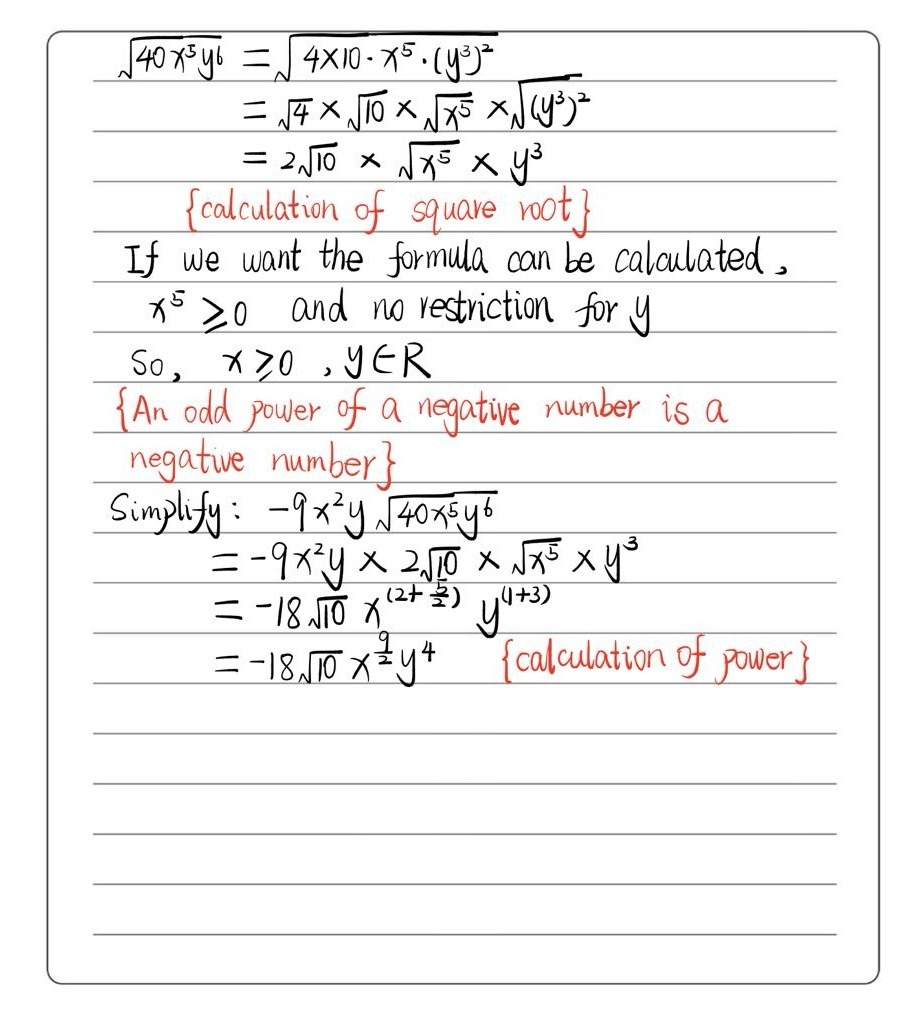 √(40x⁵y⁶) = √(4×10·x⁵·(y³)²)
= √4 × √10 × √(x⁵) × √((y³)²)
= 2√10 × √(x⁵) × y³
{calculation of square root}
If we want the formula can be calculated,
x⁵ ⩾ 0 and no restriction for y
So, x ⩾ 0 , y ∈ R
{An odd power of a negative number is a
negative number}
Simplify: -9x²y √(40x⁵y⁶)
= -9x²y × 2√10 × √(x⁵) × y³
= -18√10 x^(2+5/2) y^(1+3)
= -18√10 x^(9/2) y⁴ {calculation of power}